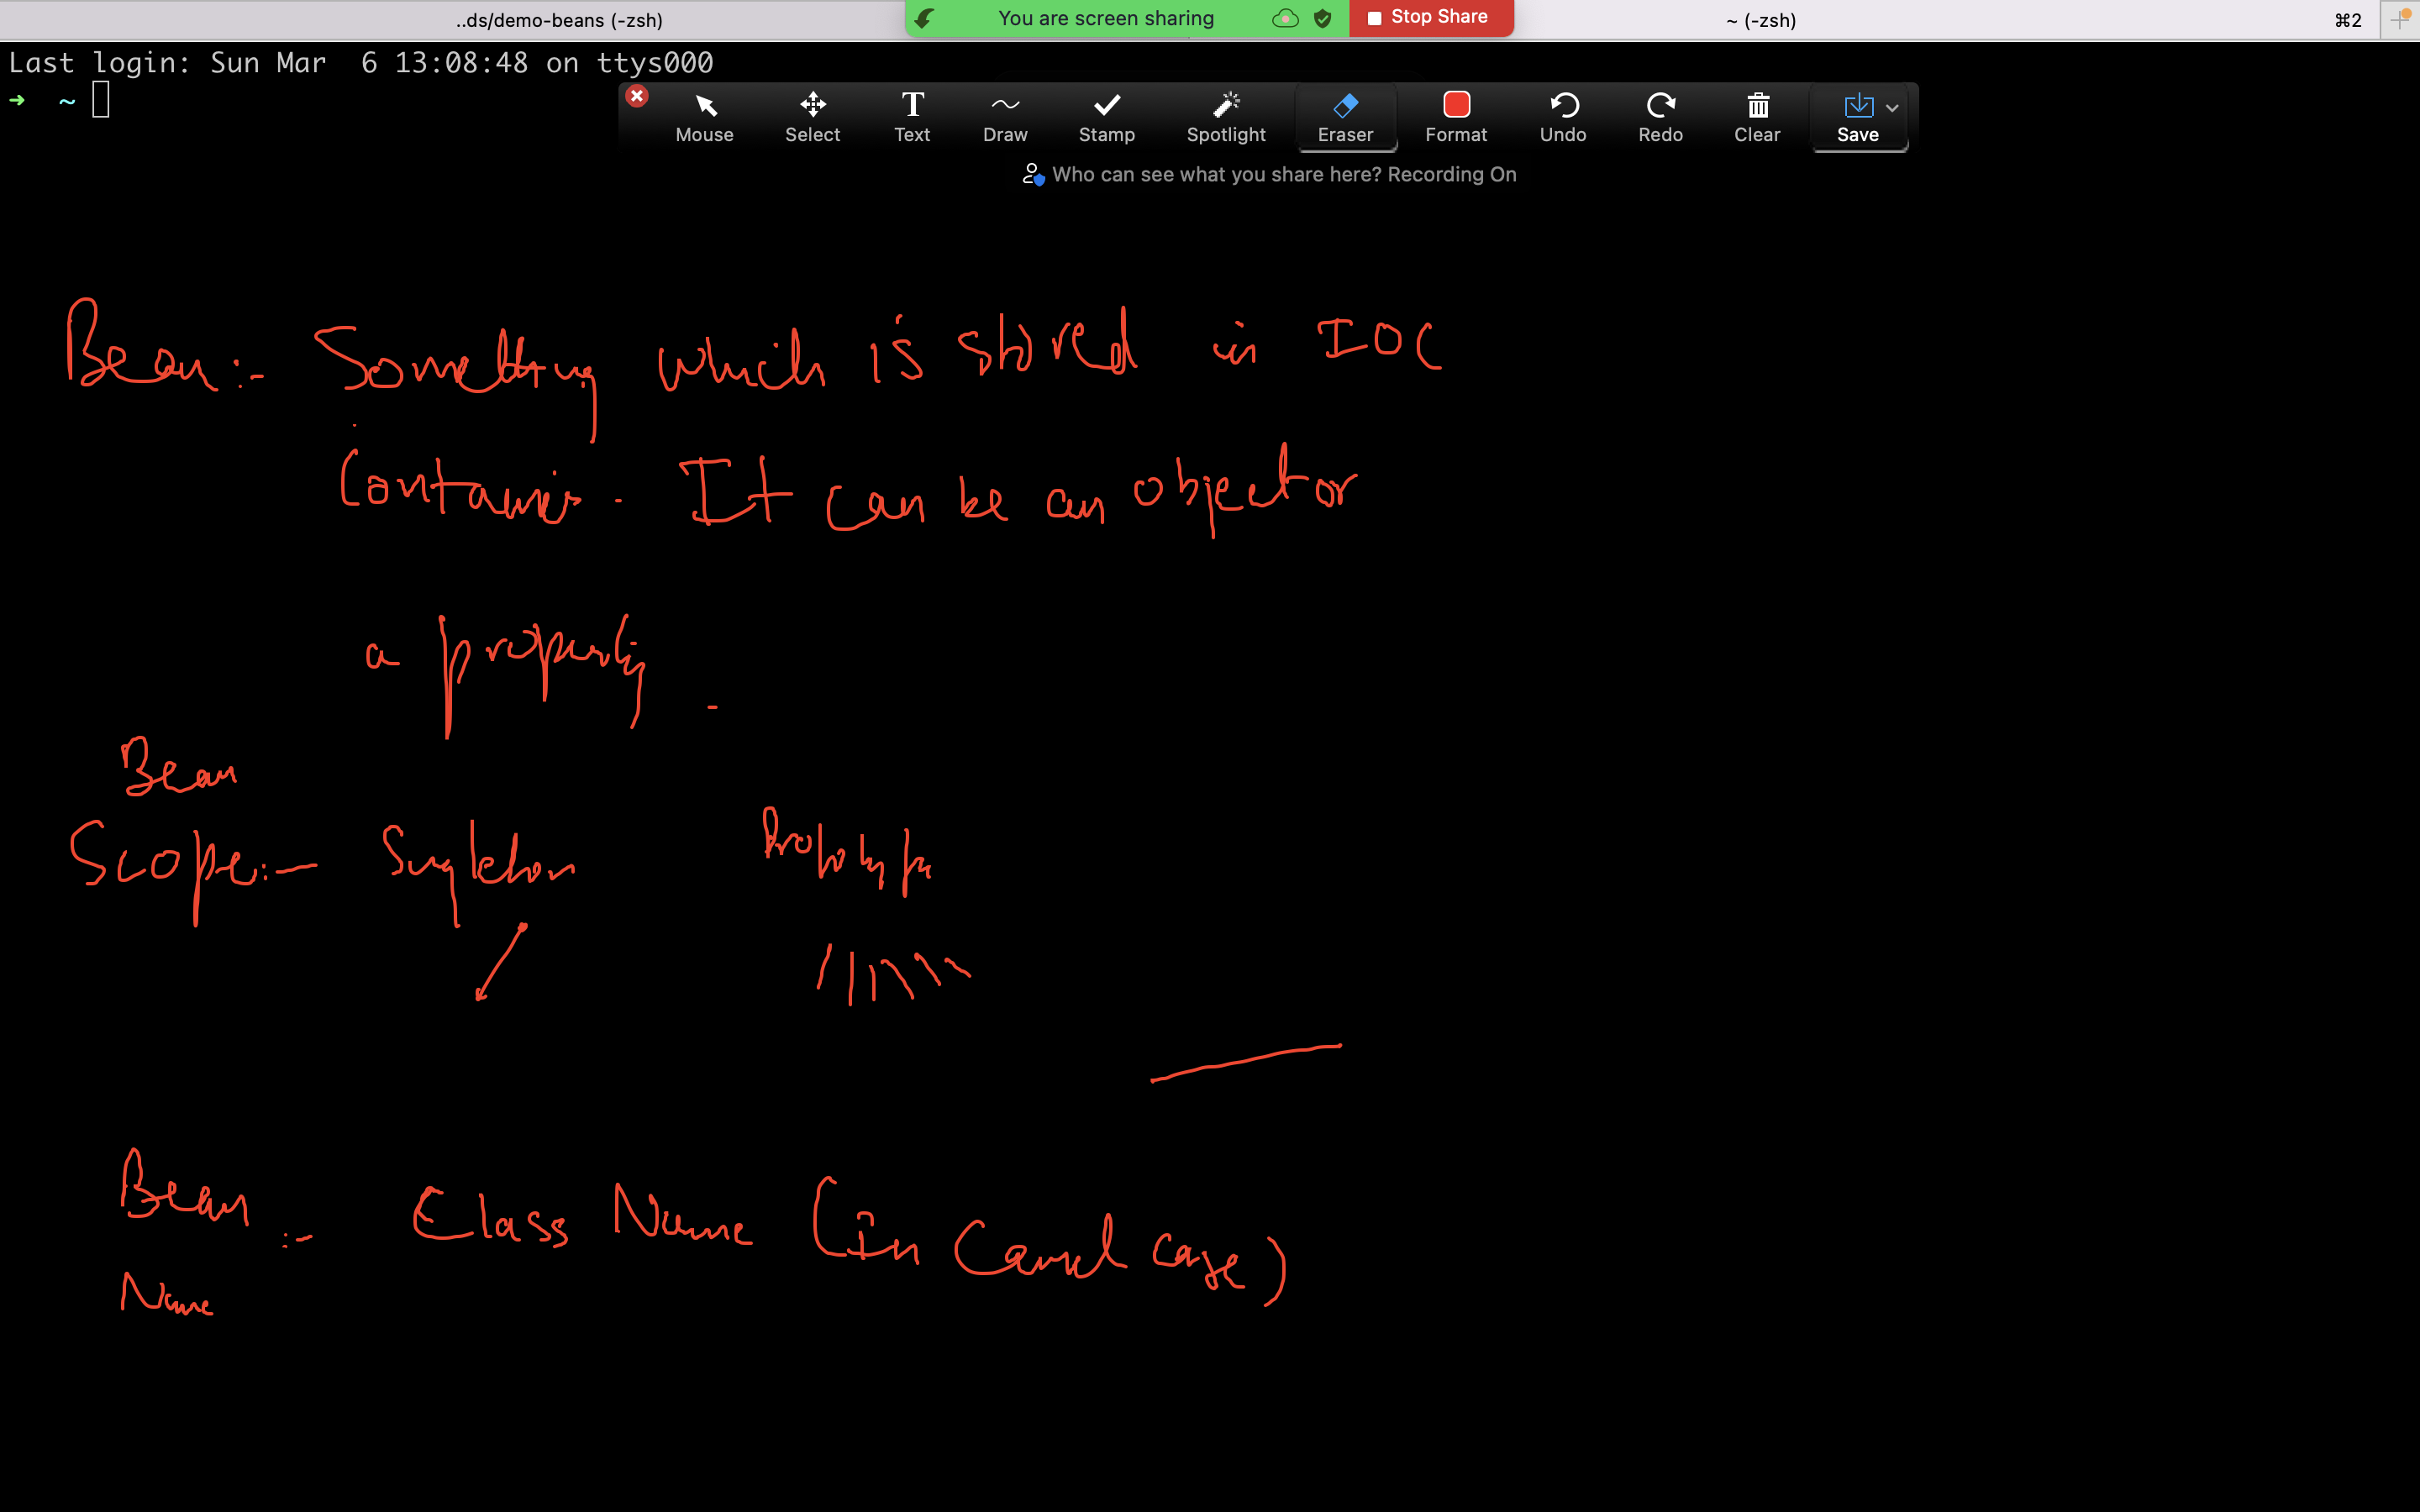 ..ds/demo-beans (-zsh)
You are screen sharing
Stop Share
~ (-zsh)
⌘2
Last login: Sun Mar  6 13:08:48 on ttys000
➜ ~
Mouse Select Text Draw Stamp Spotlight Eraser Format Undo Redo Clear Save
Who can see what you share here? Recording On
Bean:- Something which is stored in IOC
Container. It can be an object or
a property.
Bean
Scope:- Singleton Prototype
Bean :- Class Name (In Camel case)
Name